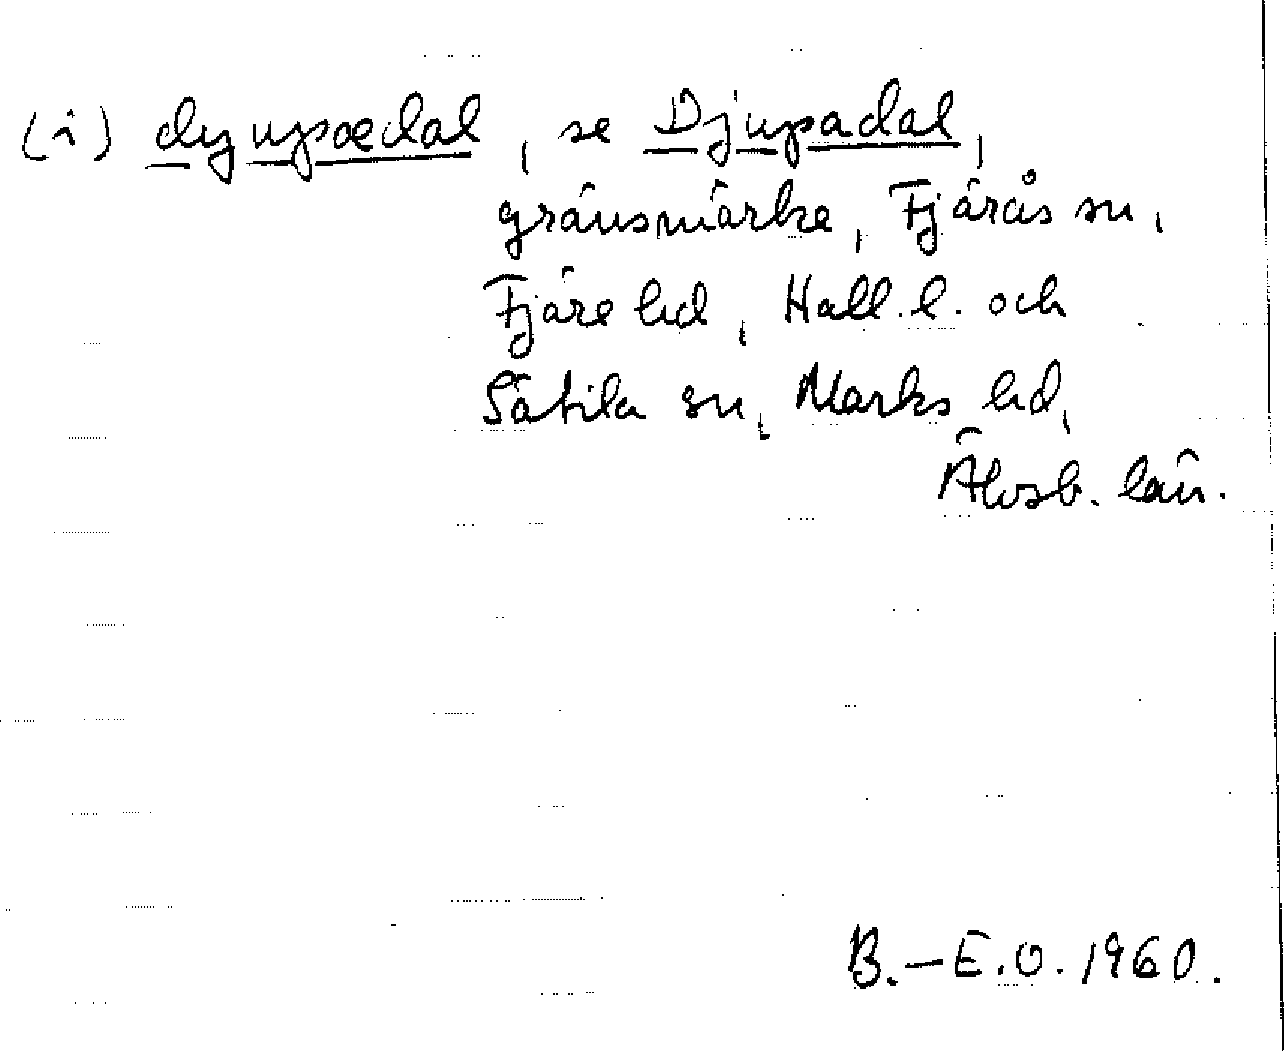 (i) dyupædal, se Djupadal,
gränsmärke, Fjärås sn,
Fjäre hd, Hall. l. och
Sätila sn, Marks hd,
Älvsb. län.
B.-E.O. 1960.